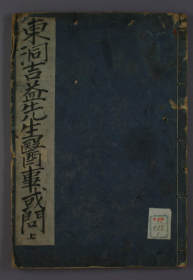 東洞吉益先生醫事或問 上